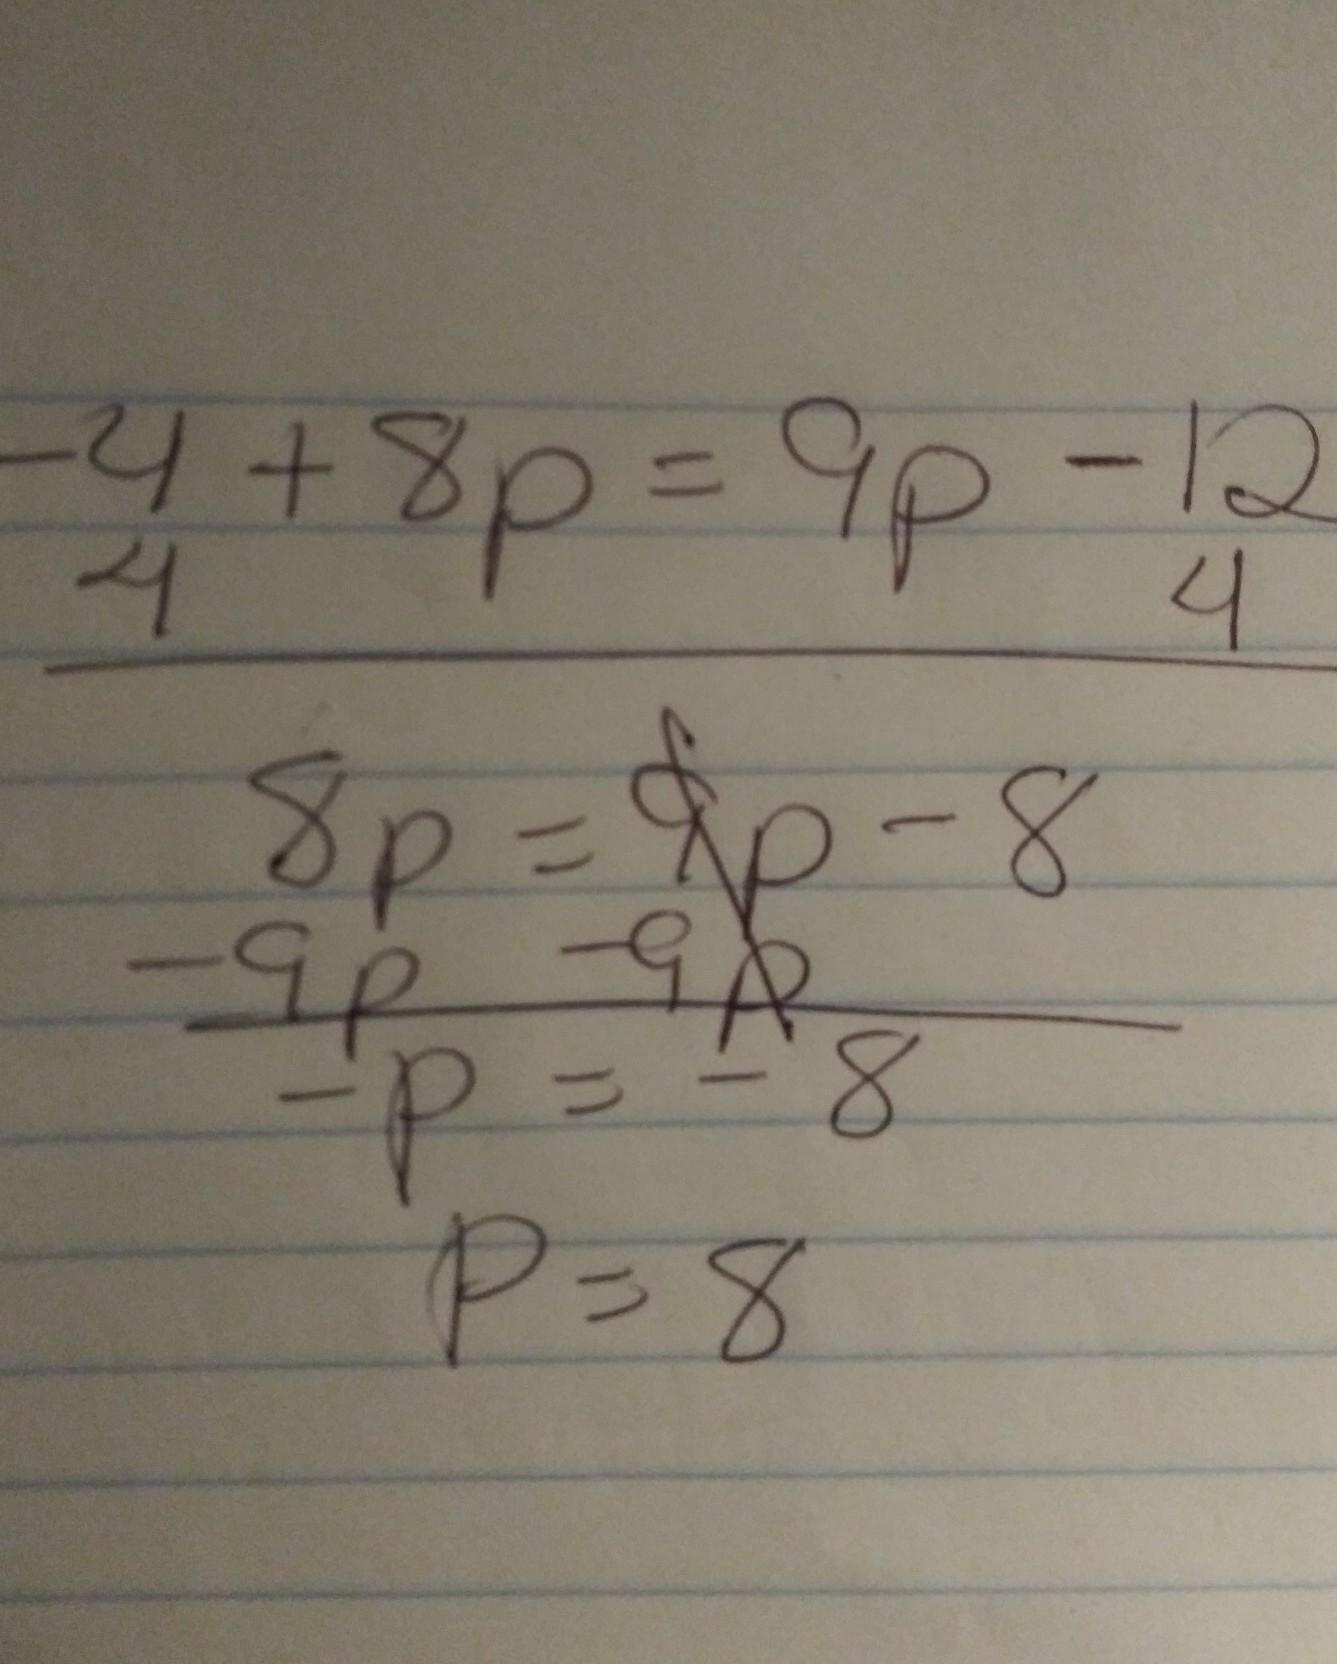 -4 + 8p = 9p - 12
4 4
8p = 9p - 8
-9p -9p
-p = - 8
P = 8